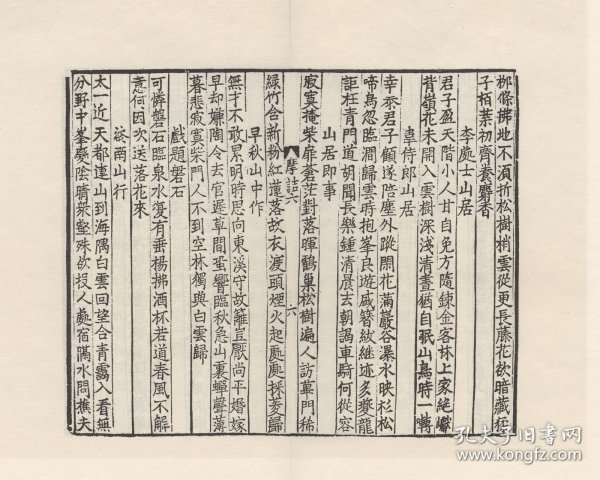 柳條拂地不須折松樹梢雲從更長藤花欲暗藏猱
子栢葉初齊養麝香
李處士山居
君子盈天階小人甘自免方隨鍊金客林上家絕巘
背嶺花未開入雲樹深淺清晝猶自眠山鳥時一囀
韋侍郎山居
幸忝君子顧遂陪塵外蹤閑花滿巖谷瀑水映杉松
啼鳥忽臨澗歸雲時抱峯良遊盛簪紱繼迹多夔龍
詎枉青門道胡聞長樂鍾清晨去朝謁車騎何從容
山居即事
寂寞掩柴扉蒼茫對落暉鸛巢松樹遍人訪蓽門稀
摩詰六
六
綠竹含新粉紅蓮落故衣渡頭煙火起處處採菱歸
早秋山中作
無才不敢累明時思向東溪守故籬豈厭尚平婚嫁
早却嫌陶令去官遲草間蛩響臨秋急山裏蟬聲薄
暮悲寂寞柴門人不到空林獨與白雲歸
戲題磐石
可憐磐石臨泉水復有垂楊拂酒杯若道春風不解
意何因吹送落花來
終南山行
太一近天都連山到海隅白雲回望合青靄入看無
分野中峯變陰晴衆壑殊欲投人處宿隔水問樵夫
孔夫子旧书网
www.kongfz.com